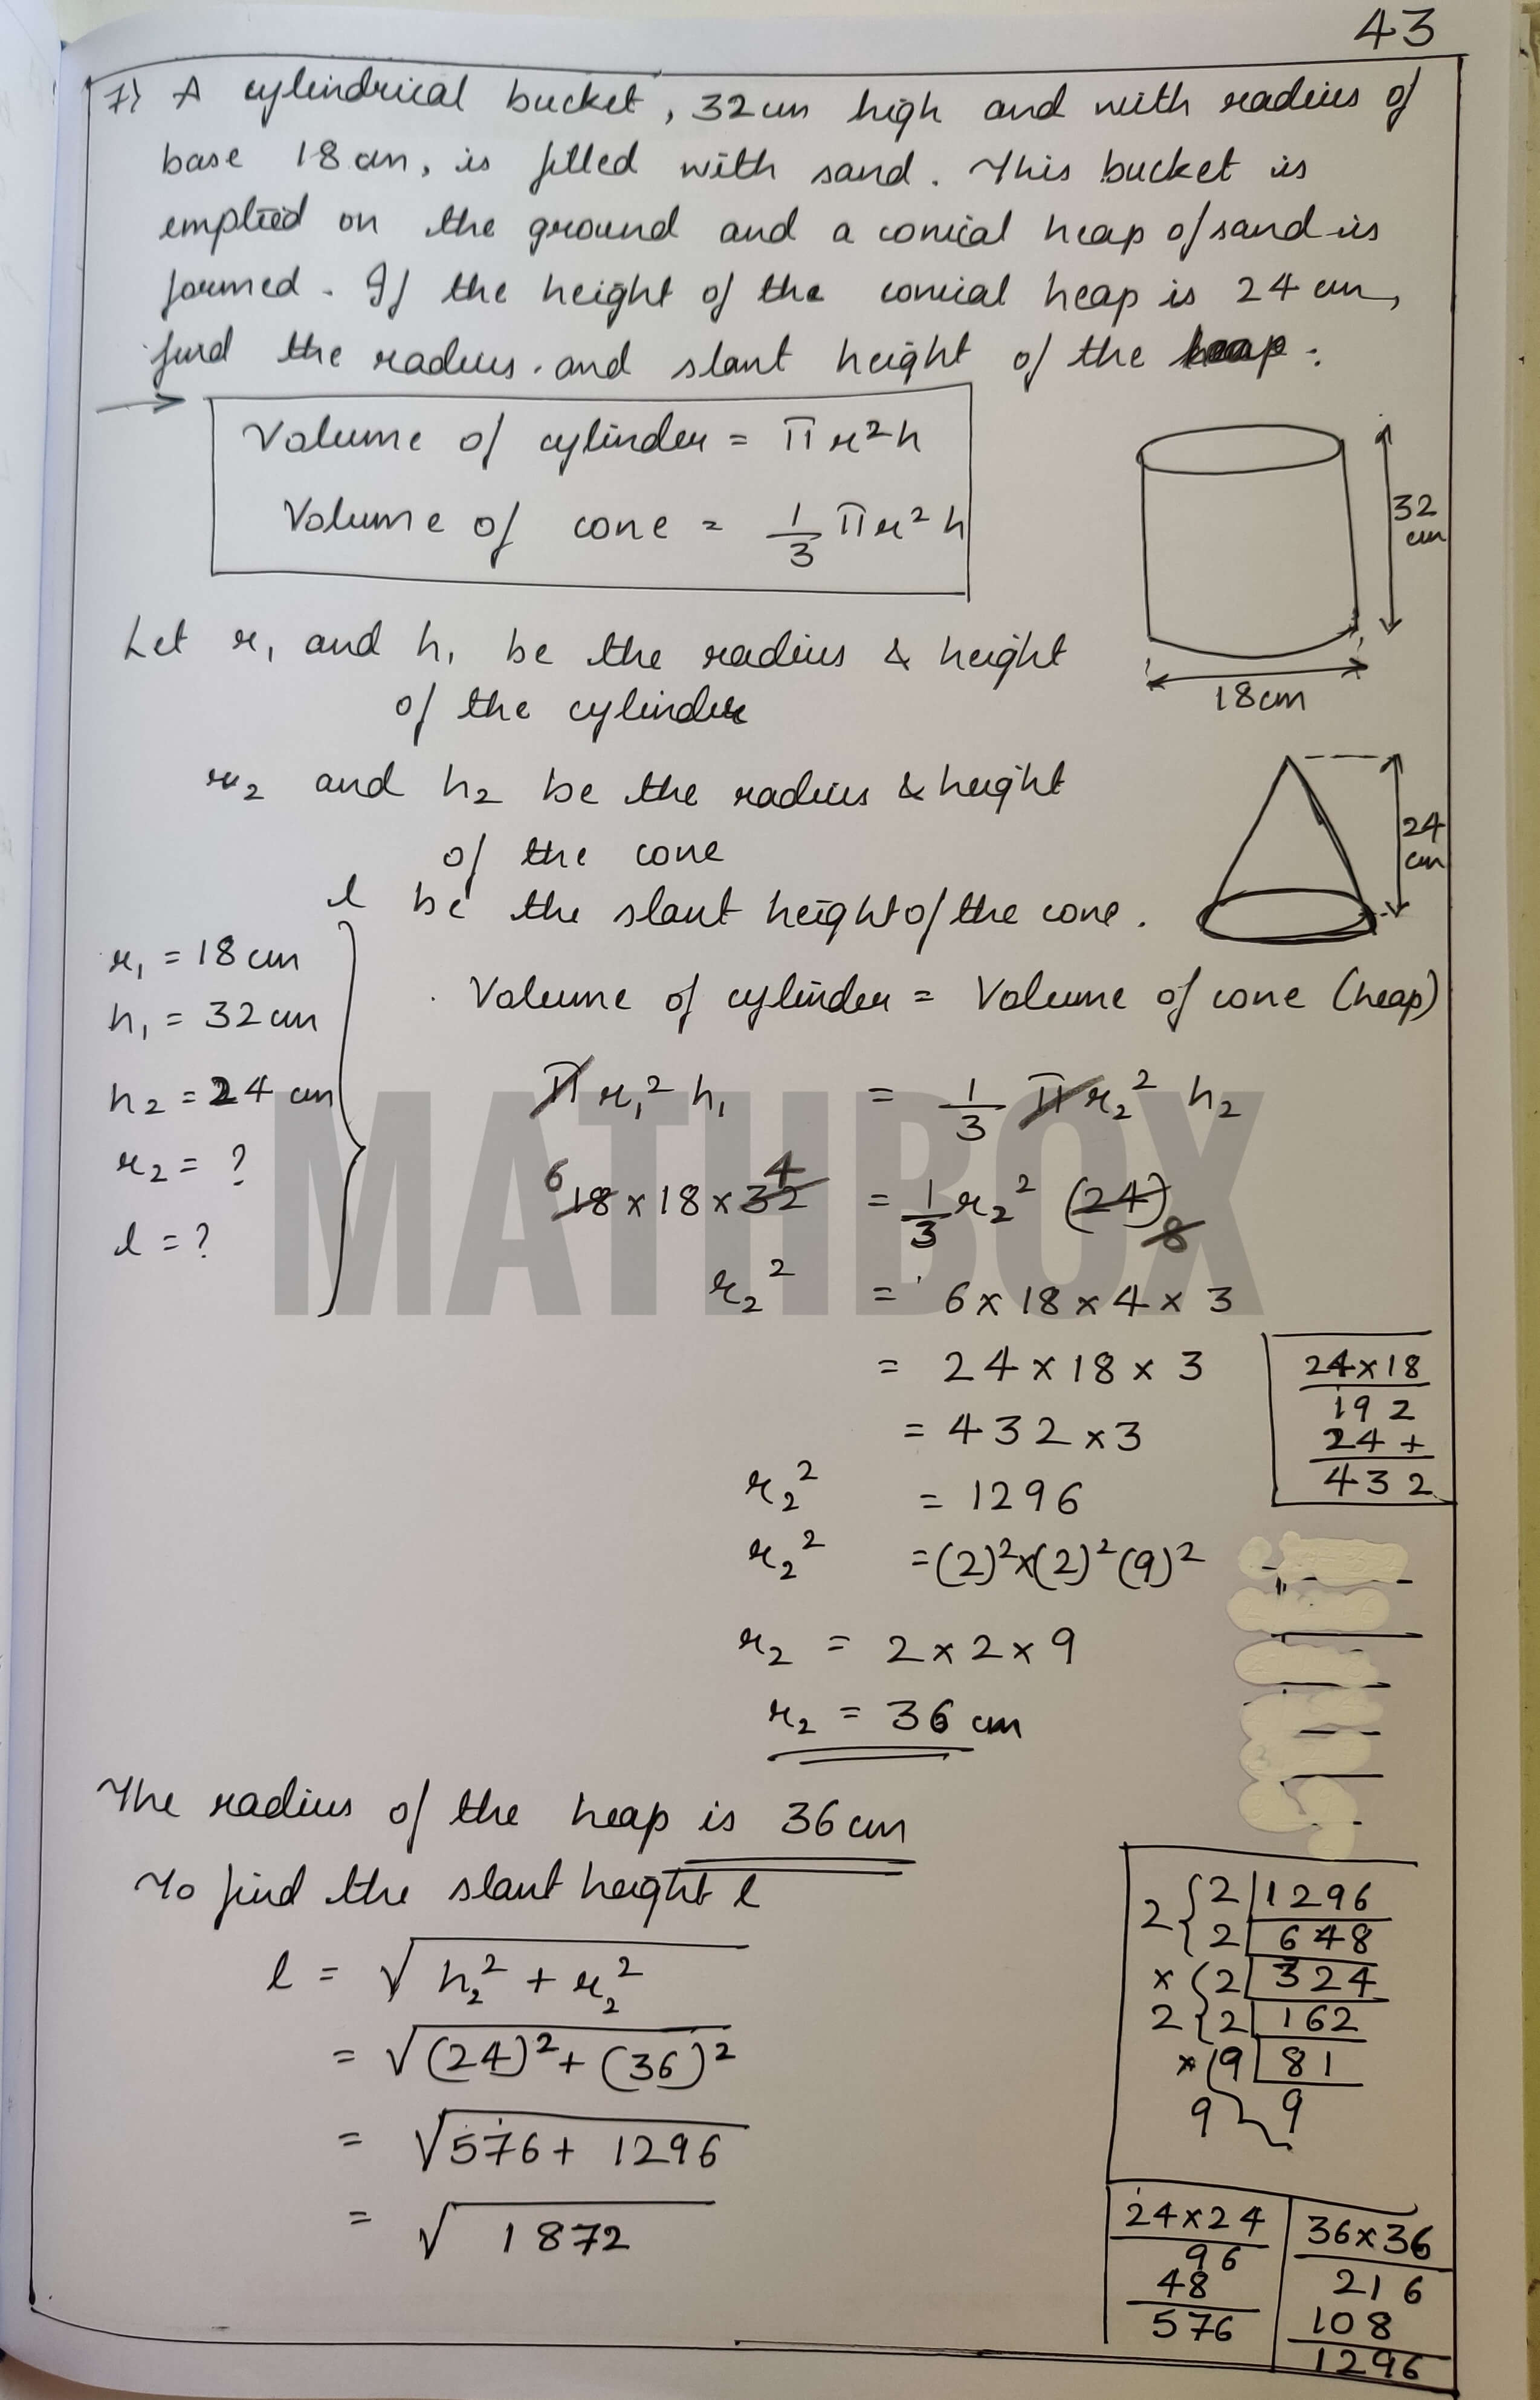 43
7) A cylindrical bucket, 32 cm high and with radius of
base 18 cm, is filled with sand. This bucket is
emptied on the ground and a conical heap of sand is
formed. If the height of the conical heap is 24 cm,
find the radius and slant height of the heap.
→ Volume of cylinder = πr²h
Volume of cone = 1/3 πr²h
32 cm
18cm
Let r₁ and h₁ be the radius & height
of the cylinder
r₂ and h₂ be the radius & height
of the cone
24 cm
l be the slant height of the cone.
r₁ = 18 cm
h₁ = 32 cm
h₂ = 24 cm
r₂ = ?
l = ?
Volume of cylinder = Volume of cone (heap)
πr₁²h₁ = 1/3 πr₂² h₂
6 4
18 × 18 × 32 = 1/3 r₂² (24)
8
MATHBOX
r₂² = 6 × 18 × 4 × 3
= 24 × 18 × 3
= 432 × 3
r₂² = 1296
r₂² = (2)²×(2)²(9)²
r₂ = 2 × 2 × 9
r₂ = 36 cm
24×18
192
24 +
432
The radius of the heap is 36 cm
To find the slant height l
l = √h₂² + r₂²
= √(24)² + (36)²
= √576 + 1296
= √1872
2 { 2 | 1296
2 | 648
× { 2 | 324
2 { 2 | 162
× ( 9 | 81
9 9
24×24
96
48
576
36×36
216
108
1296